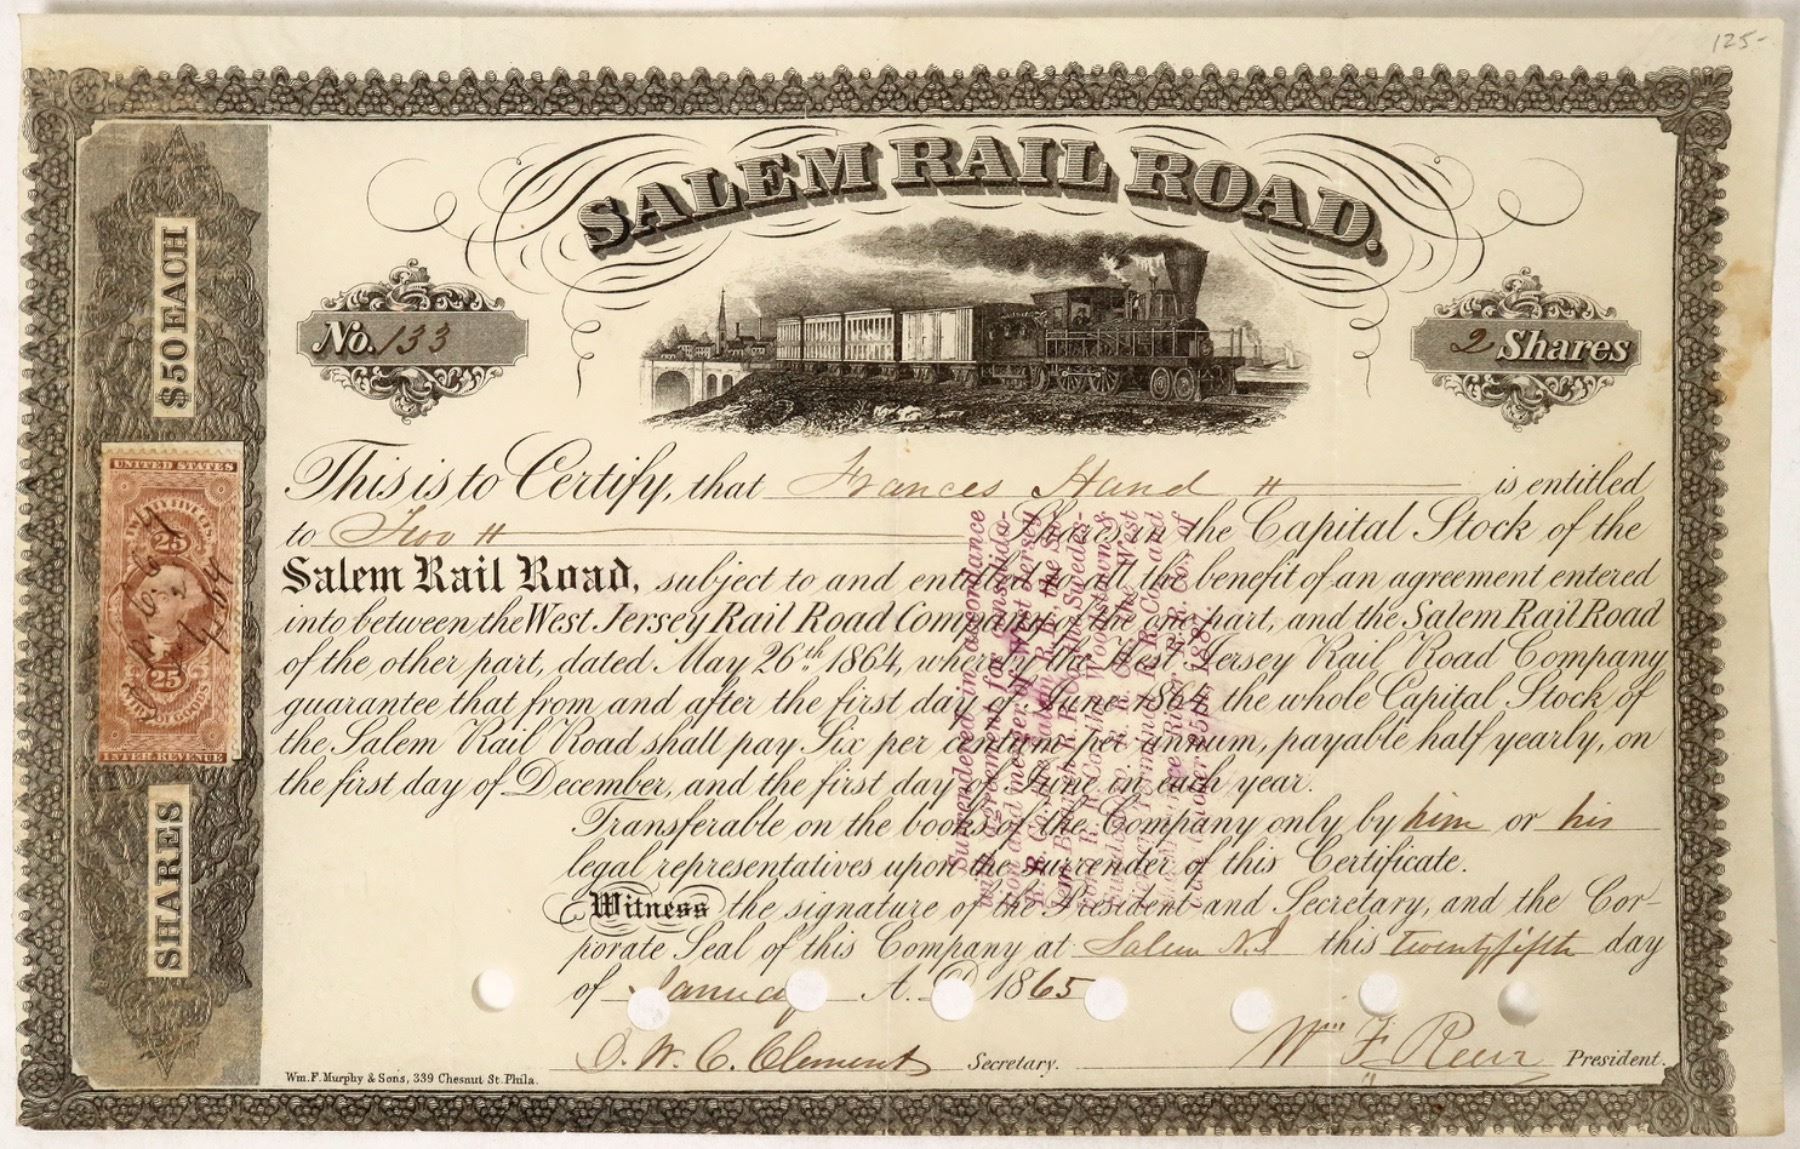 125-
SALEM RAIL ROAD.
No. 133
2 Shares
$50 EACH
SHARES
UNITED STATES
TWENTY FIVE CTS.
25
25
INTER. REVENUE
This is to Certify, that Frances Hand " is entitled
to Two " Shares in the Capital Stock of the
Salem Rail Road, subject to and entitled to all the benefit of an agreement entered
into between the West Jersey Rail Road Company of the one part, and the Salem Rail Road
of the other part, dated May 26th 1864, whereby the West Jersey Rail Road Company
guarantee that from and after the first day of June 1864 the whole Capital Stock of
the Salem Rail Road shall pay Six per centum per annum, payable half yearly, on
the first day of December, and the first day of June in each year.
Transferable on the books of the Company only by him or his
legal representatives upon the surrender of this Certificate.
Witness the signature of the President and Secretary, and the Cor-
porate Seal of this Company at Salem N.J this twentyfifth day
of January A.D 1865
Surrendered in accordance
with agreement for consolida-
tion and merger of West Jersey
R. R. Co., the Salem R. R., the Swedes-
R. R. Co., the Woodstown &
R. R. Co., the West
R. R. Co., and
R. R. Co., of
1887.
O. W. C. Clement Secretary.
Wm F. Reeve President.
Wm. F. Murphy & Sons, 339 Chesnut St. Phila.